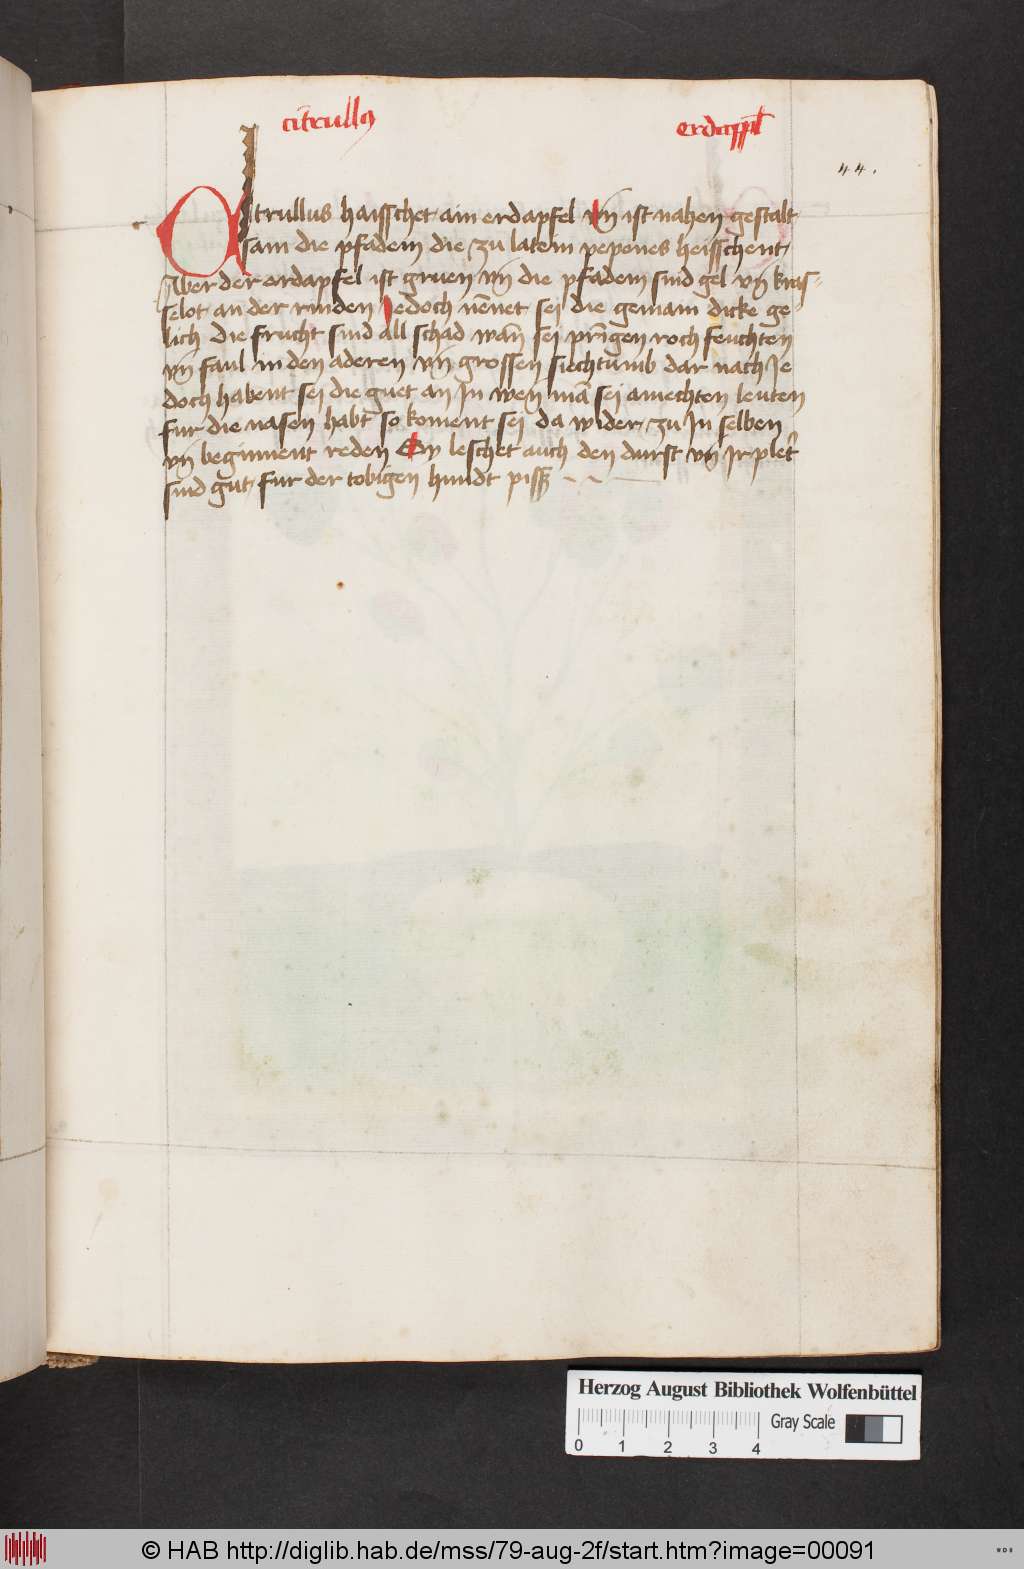 citrullꝰ erdappfl
44.
Citrullus haisschet ain erdapfel vn̄ ist nahen gestalt
sam die pfadem die zu latein pepones heisschent
Aber der erdapfel ist gruen vn̄ die pfadem sind gel vn̄ kras-
selot an der rinden Jedoch nēnet sei die gemain dicke ge
lich die frucht sind all schad wān sei prīngen roch feuchten
vn̄ faul in den aderen vn̄ grossen siechtumb dar nach Je
doch habent sei die guet an Jn wen mā sei amechten leuten
fur die nasen habt so koment sei da wider zu Jn selben
vn̄ beginnent reden Sy leschet auch den durst vn̄ Jr pleter
sind gut fur der tobigen hundt piss
Herzog August Bibliothek Wolfenbüttel
Gray Scale
0 1 2 3 4
© HAB http://diglib.hab.de/mss/79-aug-2f/start.htm?image=00091